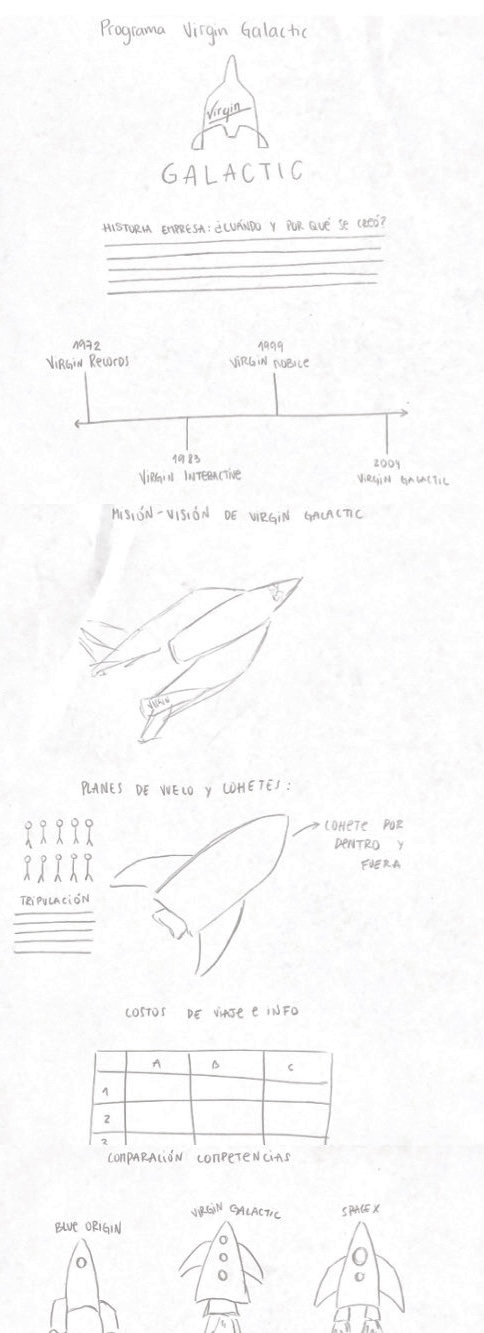 Programa Virgin Galactic
Virgin
GALACTIC
HISTORIA EMPRESA: ¿CUÁNDO Y POR QUÉ SE CREÓ?
1972
VIRGIN RECORDS
1999
VIRGIN MOBILE
1983
VIRGIN INTERACTIVE
2004
VIRGIN GALACTIC
MISIÓN-VISIÓN DE VIRGIN GALACTIC
VIRGIN
PLANES DE VUELO Y COHETES:
COHETE POR
DENTRO Y
FUERA
TRIPULACIÓN
COSTOS DE VIAJE E INFO
A B C
1
2
3
COMPARACIÓN COMPETENCIAS
BLUE ORIGIN
VIRGIN GALACTIC
SPACE X